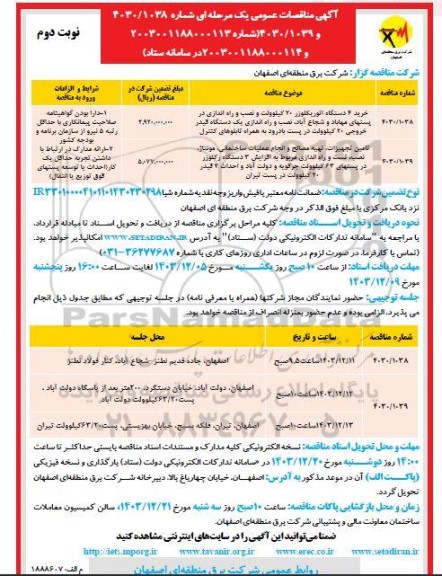 آگهی مناقصات عمومی یک مرحله ای شماره ۴۰۳۰/۱۰۳۸
و ۴۰۳۰/۱۰۳۹ (شماره ۲۰۰۳۰۰۱۱۸۸۰۰۰۱۱۳
و ۲۰۰۳۰۰۱۱۸۸۰۰۰۱۱۴ در سامانه ستاد)
نوبت دوم
شرکت مناقصه گزار: شرکت برق منطقه‌ای اصفهان
شماره مناقصه
موضوع مناقصه
مبلغ تضمین شرکت در مناقصه (ریال)
شرایط و الزامات ورود به مناقصه
۴۰۳۰/۱۰۳۸
خرید ۴ دستگاه اتوریکلوزر ۲۰ کیلوولت و نصب و راه اندازی در
پستهای مهاباد و شجاع آباد، نصب و راه اندازی یک دستگاه فیدر
خروجی ۲۰ کیلوولت در پست بادرود به همراه تابلوهای کنترل
۲,۹۲۰,۰۰۰,۰۰۰
۴۰۳۰/۱۰۳۹
تامین تجهیزات، تهیه مصالح و انجام عملیات ساختمانی، مونتاژ،
نصب، تست و راه اندازی مربوط به افزایش ۳ دستگاه رکلوزر
در پستهای ۶۳ کیلوولت جرگویه و دولت آباد و احداث ۴ فیدر
۲۰ کیلوولت در پست تیران
۵,۰۷۷,۰۰۰,۰۰۰
۱-دارا بودن گواهینامه
صلاحیت پیمانکاری با حداقل
رتبه ۵ نیرو از سازمان برنامه و
بودجه کشور
۲-ارائه مدارک در ارتباط با
داشتن تجربه حداقل یک
کار (احداث یا توسعه پستهای
فوق توزیع یا انتقال)
نوع تضمین شرکت در مناقصه: ضمانت نامه معتبر یا فیش واریز وجه نقد به شماره شبا
نزد بانک مرکزی با مبلغ فوق الذکر در وجه شرکت برق منطقه ای اصفهان
نحوه دریافت و تحویل اسناد مناقصه: کلیه مراحل برگزاری مناقصه از دریافت و تحویل اسناد تا مبادله قرارداد،
با مراجعه به "سامانه تدارکات الکترونیکی دولت (ستاد)" به آدرس WWW.SETADIRAN.IR امکانپذیر خواهد بود.
(تماس با کارفرما، در صورت لزوم در ساعات اداری روزهای کاری با شماره ۳۶۲۷۷۶۸۷-۰۳۱)
مهلت دریافت اسناد: از ساعت ۱۰ صبح روز یکشنبه مورخ ۱۴۰۳/۱۲/۰۵ لغایت ساعت ۱۶:۰۰ روز پنجشنبه
مورخ ۱۴۰۳/۱۲/۰۹
جلسه توجیهی: حضور نمایندگان مجاز شرکتها (همراه با معرفی نامه) در جلسه توجیهی که مطابق جدول ذیل انجام
می پذیرد، الزامی بوده و عدم حضور بمنزله انصراف از مناقصه خواهد بود.
شماره مناقصه
ساعت و تاریخ
محل جلسه
۴۰۳۰/۱۰۳۸
۱۴۰۳/۱۲/۱۱ ساعت ۹,۵ صبح
اصفهان، جاده قدیم نطنز، شجاع آباد، کنار فولاد نطنز
۴۰۳۰/۱۰۳۹
۱۴۰۳/۱۲/۱۲ ساعت ۱۰ صبح
اصفهان، دولت آباد، خیابان دستگرد، ۲۰۰ متر بعد از باسگاه دولت آباد،
پست ۶۳/۲۰ کیلوولت دولت آباد
۱۴۰۳/۱۲/۱۳ ساعت ۱۰ صبح
اصفهان، تیران، فلکه بسیج، خیابان بهزیستی، پست ۶۳/۲۰ کیلوولت تیران
مهلت و محل تحویل اسناد مناقصه: نسخه الکترونیکی کلیه مدارک و مستندات اسناد مناقصه بایستی حداکثر تا ساعت
۱۴:۰۰ روز دوشنبه مورخ ۱۴۰۳/۱۲/۲۰ در سامانه تدارکات الکترونیکی دولت (ستاد) بارگذاری و نسخه فیزیکی
(پاکت الف) آن در موعد مذکور به آدرس: اصفهان، خیابان چهارباغ بالا، دبیرخانه شرکت برق منطقه‌ای اصفهان
تحویل گردد.
زمان و محل بازگشایی پاکات مناقصه: ساعت ۱۰ صبح روز سه شنبه مورخ ۱۴۰۳/۱۲/۲۱، سالن کمیسیون معاملات
ساختمان معاونت مالی و پشتیبانی شرکت برق منطقه‌ای اصفهان.
ضمنا می‌توانید این آگهی را در سایت‌های اینترنتی مشاهده کنید
http://iets.mporg.ir www.tavanir.org.ir www.erec.co.ir www.setadiran.ir
روابط عمومی شرکت برق منطقه‌ای اصفهان
م الف: ۱۸۸۸۶۰۷